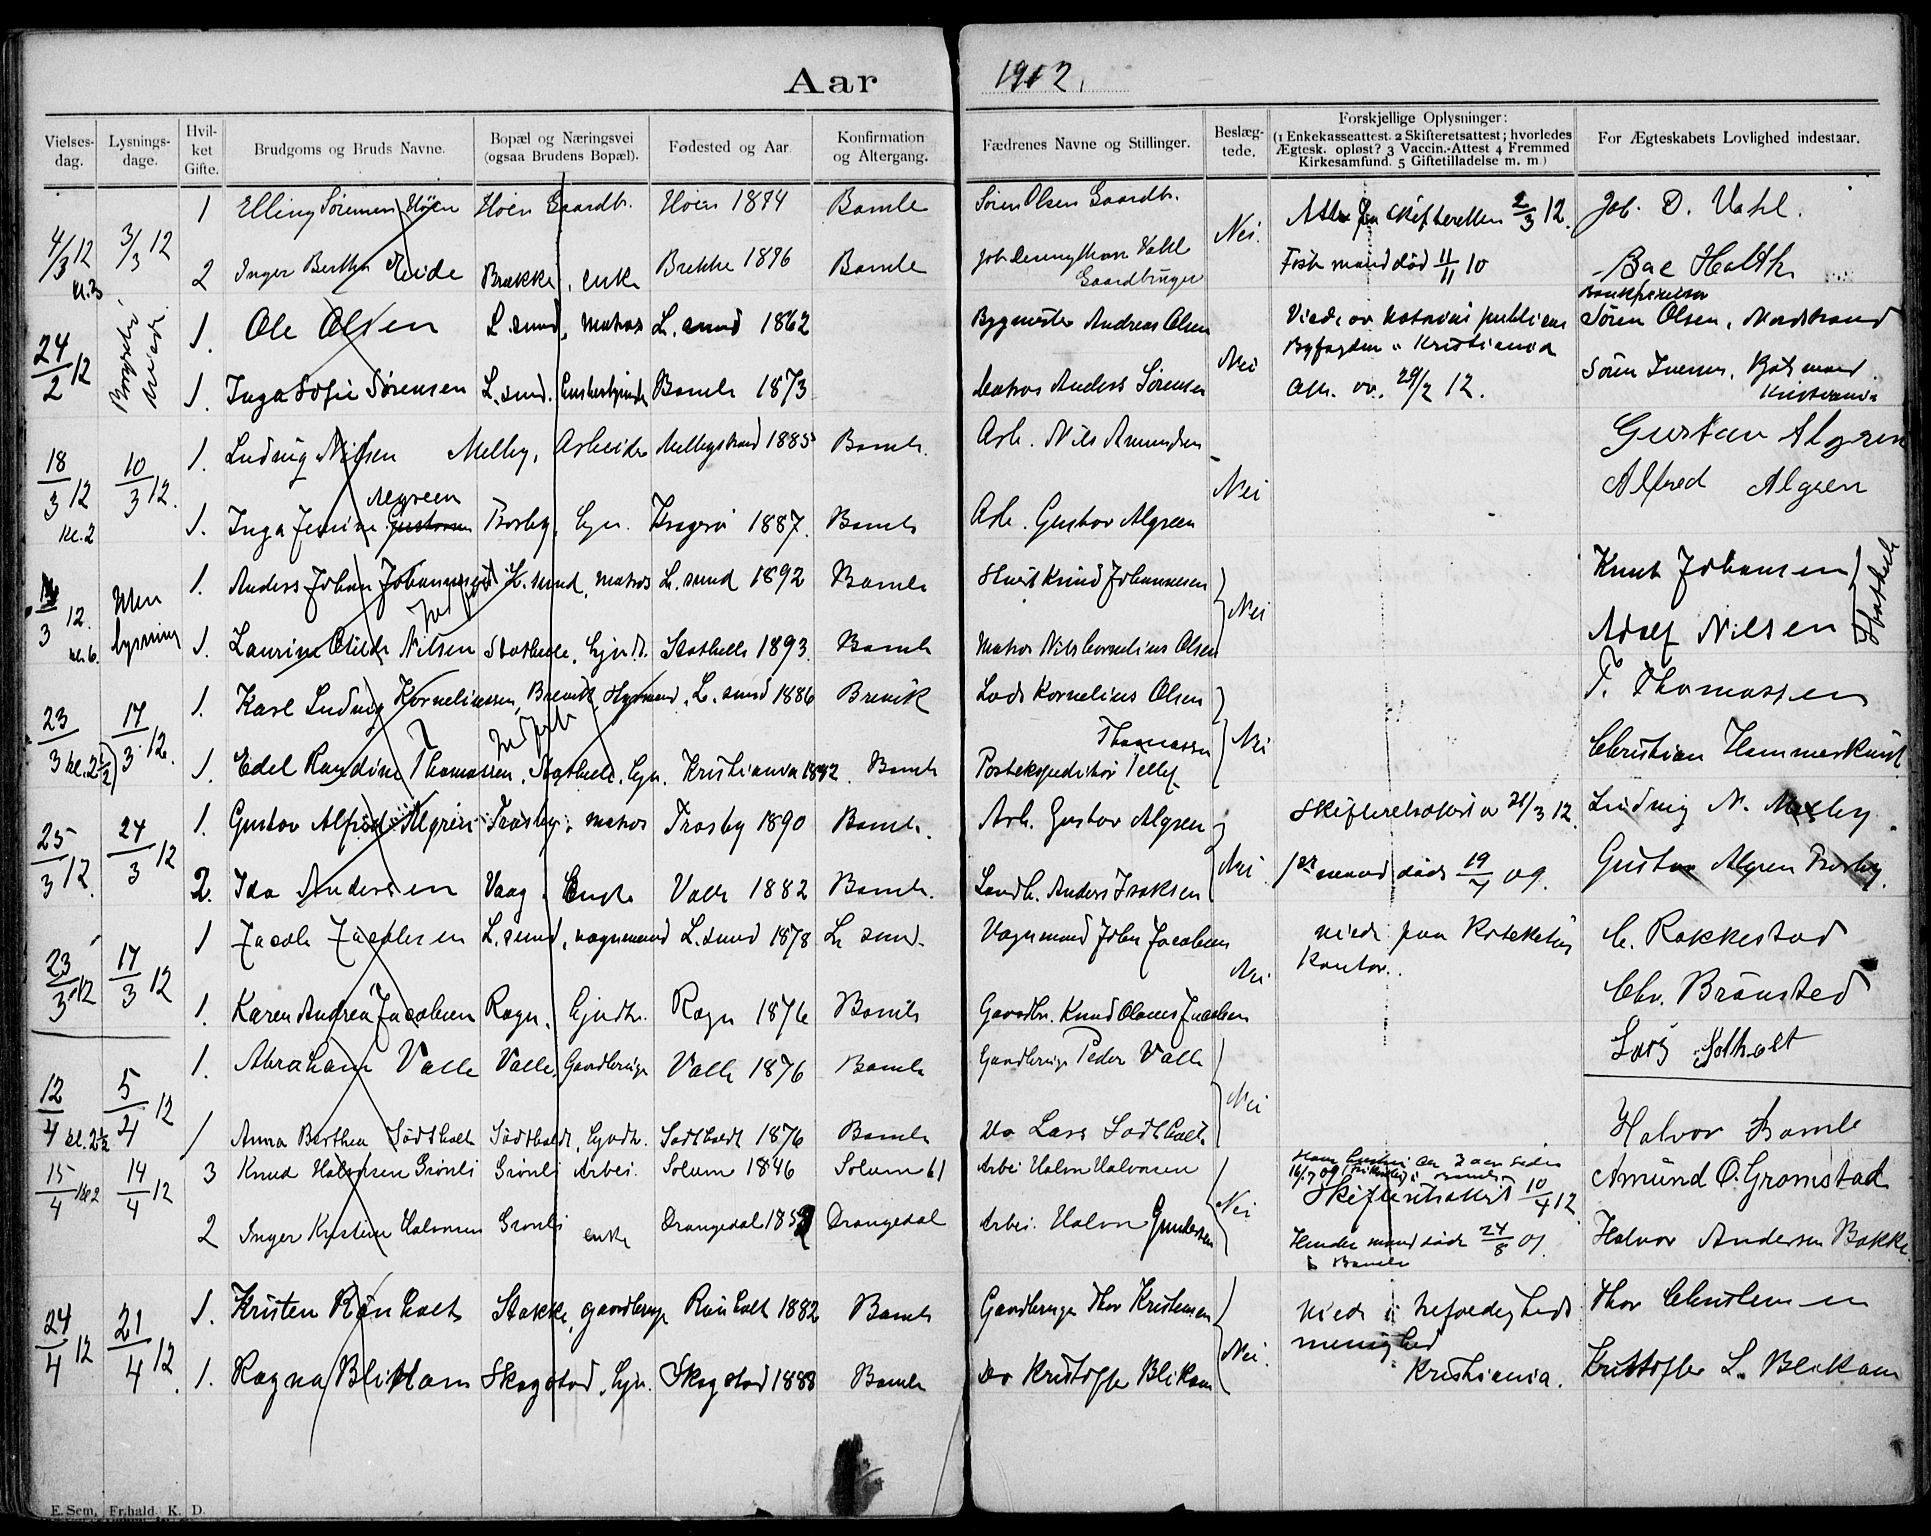 Aar 1912.
Vielses-dag. Lysnings-dage. Hvil-ket Gifte. Brudgoms og Bruds Navne. Bopæl og Næringsvei (ogsaa Brudens Bopæl). Fødested og Aar. Konfirmation og Altergang. Fædrenes Navne og Stillinger. Beslæg-tede. Forskjellige Oplysninger: (1 Enkekasseattest. 2 Skifteretsattest; hvorledes Ægtesk. opløst? 3 Vaccin.-Attest 4 Fremmed Kirkesamfund. 5 Giftetilladelse m. m.) For Ægteskabets Lovlighed indestaar.
4/3 12 3/3 12 1 Elling Sørensen Høen Høen Gaardbr. Høen 1874 Bamle Søren Olsen Gaardbr. Nei. Skifteretten 2/3 12. Job. D. Vahl.
2 Inger Berthe Eide Brække, enke Brekke 1876 Bamle Vahl Gaardbruger mand død 11/11 10
24/2 12 1. Ole Olsen L. sund, matros L. sund 1862 Andreas Olsen Nei Viede av notarius publicus Byfogden i Kristiania Søren Olsen, Nordstrand
1. Inga Sofie Sørensen L. sund. Bamle 1873 Matros Anders Sørensen 29/2 12. Søren Iversen, Kristiania
18/3 12 kl. 2 10/3 12. 1. Ludvig Nilsen Melby, Arbeider Melbystrand 1885 Bamle. Arb. Nils Amundsen Nei Gustav Algren
Alfred Algren
1. Inga Jensine Algreen Trosby, hjm. Kragerø 1887. Bamle Arb. Gustav Algreen
3 12. kl. 6. Uten lysning 1. Anders Johan Johannesen L. sund, matros L. sund 1892 Bamle Knud Johannesen Nei Knut Johansen
1. Laurine Otilde Nilsen Stathelle, hjm. Stathelle 1893. Bamle Matros Nils Cornelius Olsen Adolf Nilsen Stathelle
23/3 kl. 2½ 17/3 12. 1. Karl Ludvig Korneliussen, Brevik, L. sund 1886 Brevik Lods Kornelius Olsen Nei T. Thomassen
1. Edel Randine Thomassen, Stathelle, hjm. Kristiania 1892. Bamle Postekspeditør Tellef Thomassen Christian Hammerkvist
25/3 12. 24/3 12 1. Gustav Alfred Algren Trosby, matros Trosby 1890 Bamle. Arb. Gustav Algren Nei Skifteretsattest av 21/3 12. Ludvig N. Melby.
2. Ida Andersen Vaag, Enke Valle 1882 Bamle. Landh. Anders Isaksen 1ste mand døde 19/7 09. Gustav Algren Trosby.
23/3 12 17/3 12 1 Jacob Jacobsen L. sund, vognmand L. sund 1878 L. sund. Vognmand John Jacobsen Nei viede paa kontor. C. Rakkestad
1. Karen Andrea Jacobsen Rogn, hjm. Rogn 1876 Bamle Gaardbr. Knud Olaves Jacobsen Chr. Brønsted
12/4 kl. 2½ 5/4 12 1. Abraham Valle Valle Gaardbruger Valle 1876 Bamle Gaardbruger Peder Valle Nei Lars Sotholt
1 Anna Berthea Sødtholt Sødtholdt, hjm. Sødtholdt 1876 Bamle Do Lars Sødtholt Halvor Bamle
15/4 kl 2 14/4 12 3 Knud Halvorsen Grønli Grønli Arbei. Solum 1846 Solum 61 Arbei Halvor Halvorsen Nei Skifteretsattest 10/4 12. Amund O. Gromstad
2 Inger Kirstine Halvorsen Grønli enke Drangedal 1852 Drangedal Arbei. Halvor Gundersen Hendes mand døde 24/8 01. i Bamle Halvor Andersen Bakke
24/4 12 21/4 12. 1. Kristen Rønholt Stokke, gaardbruger Rønholt 1882 Bamle Gaardbruger Thor Kristensen Nei. viede i trefoldigheds menighed Kristiania. Thor Christensen
1. Ragna Blikom Skogstad, hjm. Skogstad 1888 Bamle Do Kristoffer Blikom Kristoffer L. Blekom
E. Sem, Fr.hald. K. D.